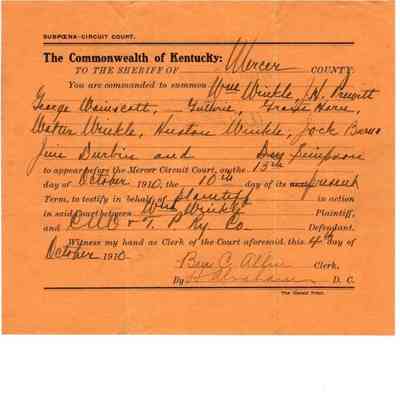 SUBPŒNA-CIRCUIT COURT.
The Commonwealth of Kentucky:
TO THE SHERIFF OF Mercer COUNTY:
You are commanded to summon Wm Winkle, Prewitt
George Wainscott, Guthrie, Horn,
Walter Winkle, Huston Winkle, Jack
Jim Durbin and Simpson
to appear before the Mercer Circuit Court, on the 13th
day of October 1910, the 10th day of its present
Term, to testify in behalf of Plaintiff in action
in said Court between Wm Winkle Plaintiff,
and & T. P Ry Co. Defendant.
Witness my hand as Clerk of the Court aforesaid, this 4th day of
October 1910.
Ben C. Allin Clerk,
By D. C.
The Herald Print.